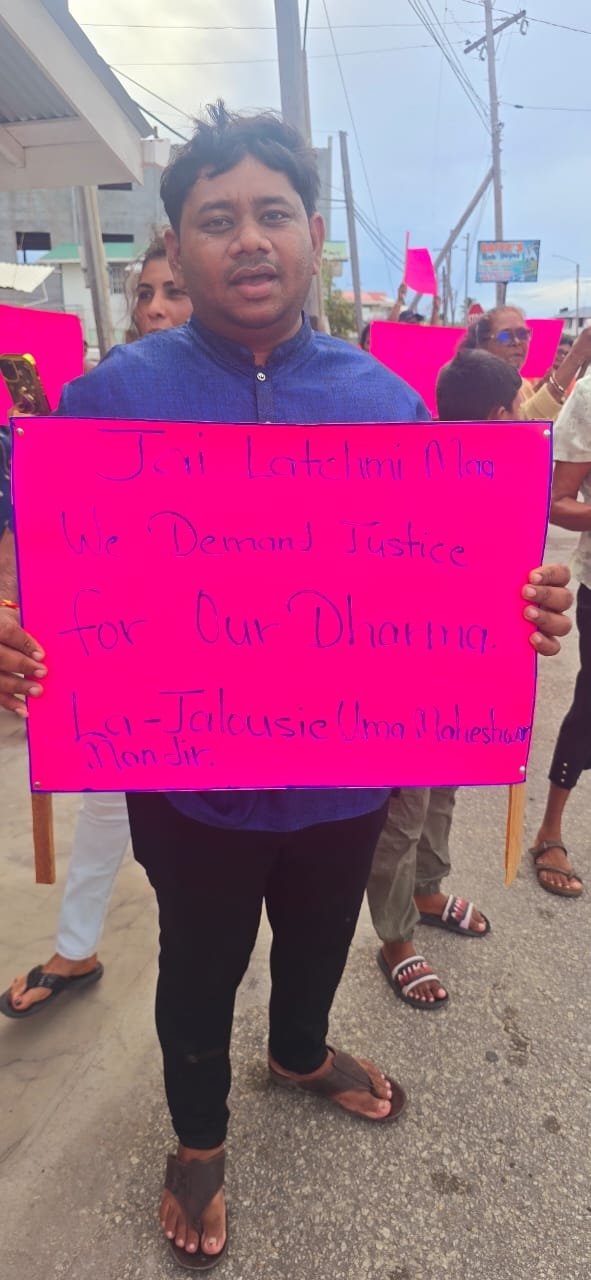 Jai Latchmi Maa
We Demand Justice
for Our Dharma.
La-Jalousie Uma Maheshwar
Mandir.
NIKE